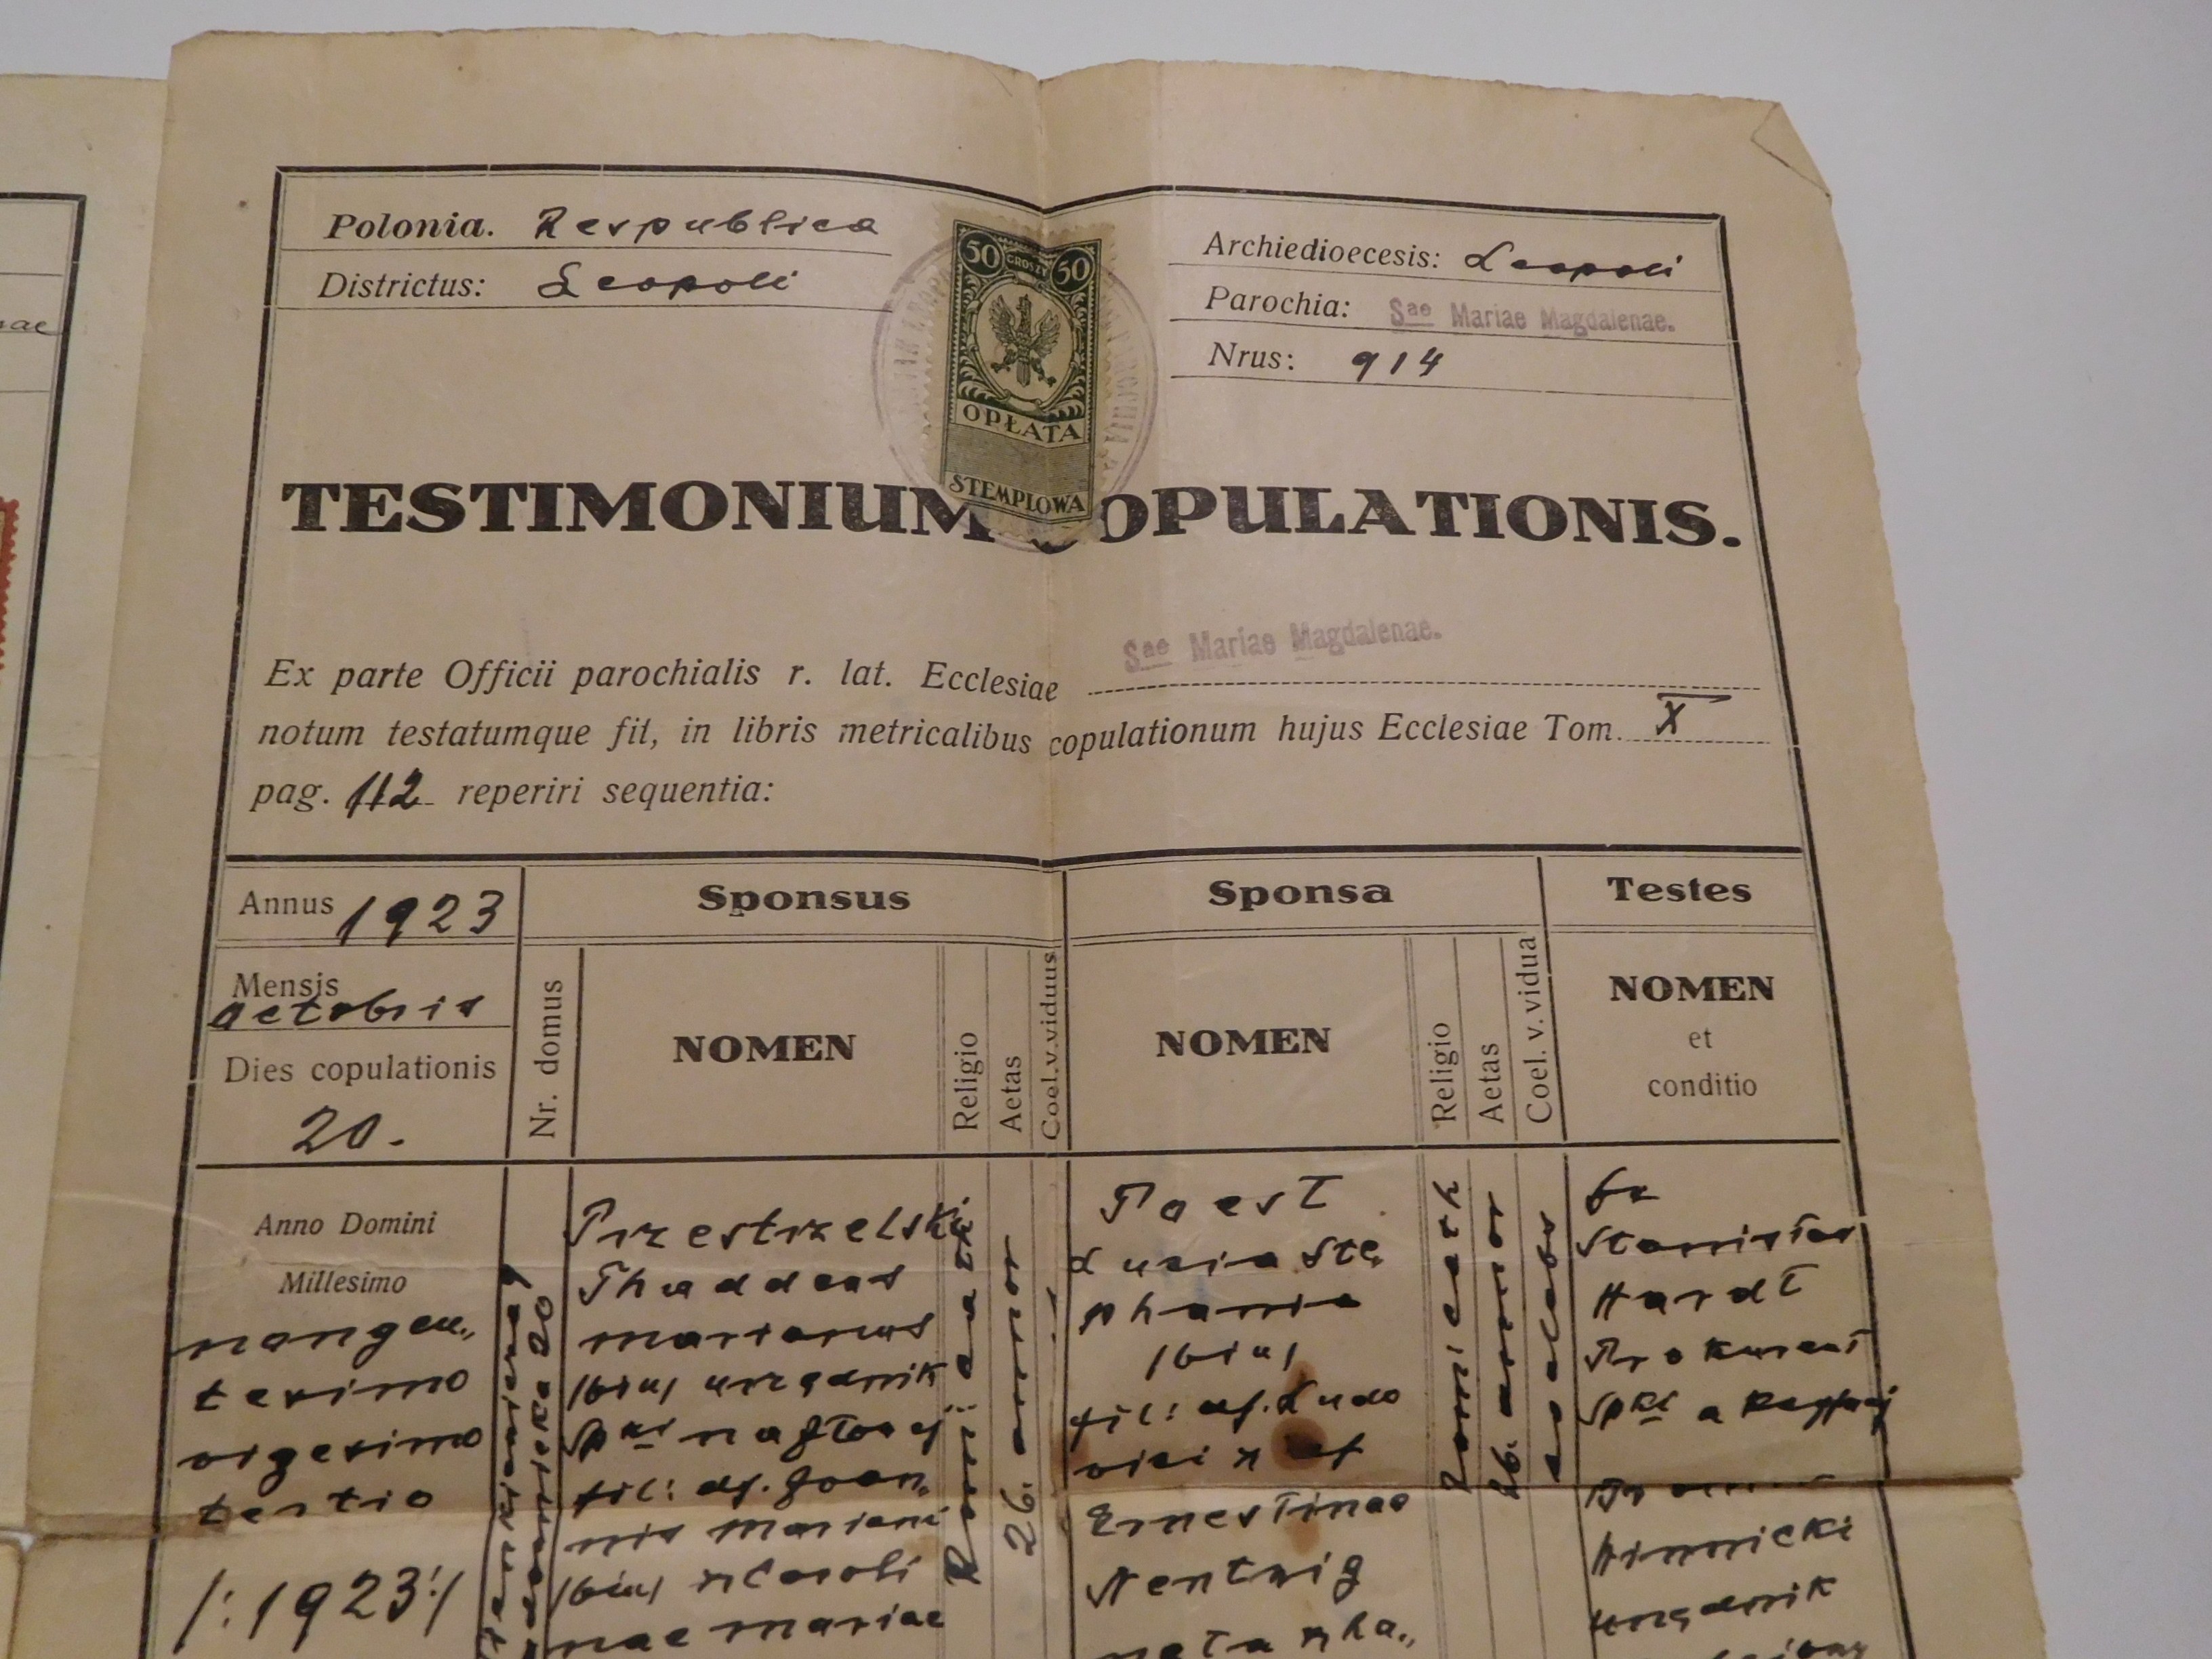 Polonia. Respublica
Districtus: Leopoli
50 GROSZY 50
OPŁATA
STEMPLOWA
Archiedioecesis: Leopoli
Parochia: Sae Mariae Magdalenae.
Nrus: 914
TESTIMONIUM COPULATIONIS.
Sae Mariae Magdalenae.
Ex parte Officii parochialis r. lat. Ecclesiae
notum testatumque fit, in libris metricalibus copulationum hujus Ecclesiae Tom. X
pag. 112 reperiri sequentia:
Annus 1923
Mensis
octobris
Dies copulationis
20.
Sponsus
Nr. domus
NOMEN
Religio
Aetas
Coel. v. viduus
Sponsa
NOMEN
Religio
Aetas
Coel. v. vidua
Testes
NOMEN
et
conditio
Anno Domini
Millesimo
nongen„
tesimo
vigesimo
tertio
/:1923:/
20
Przestrzelski
Thaddeus
Marianus
/bin/ urzędnik
fil: Joan„
nis Mariani
/bin/ Caroli
nae Mariae
26. annor
Paest
Lucia Ste„
phania
/bin/
fil: Ludo
vici
Ernestinae
Nentwig
nata
Rom cath
26. annor
Stanislas
Hardt
Prokurent
Winnicki
urzędnik